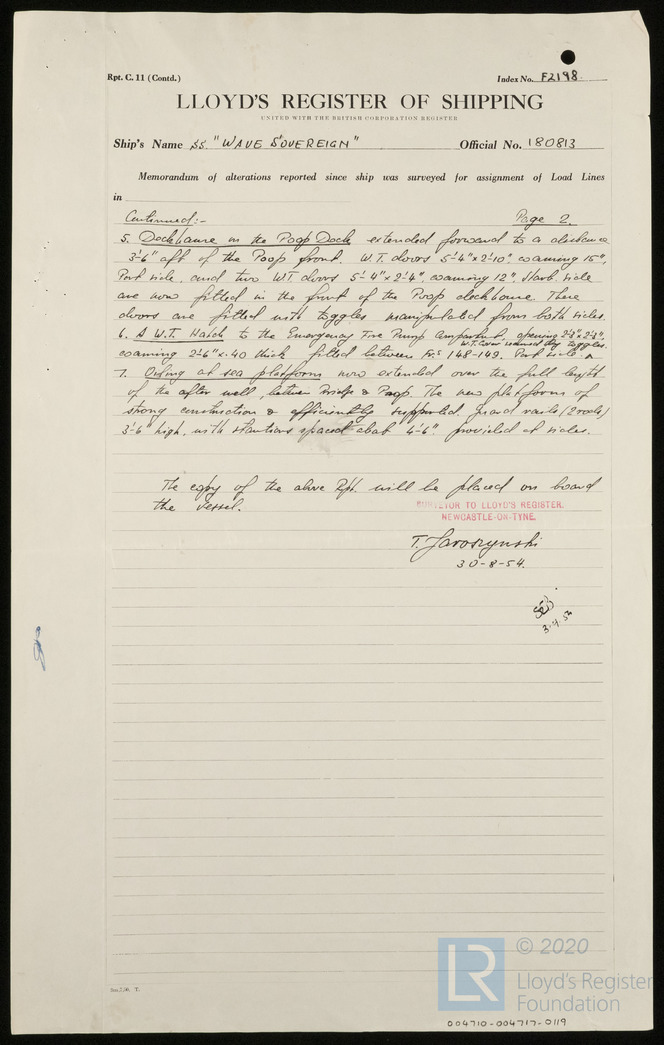 Rpt. C. 11 (Contd.)
Index No. F2198
LLOYD'S REGISTER OF SHIPPING
UNITED WITH THE BRITISH CORPORATION REGISTER
Ship's Name SS. "WAVE SOVEREIGN"
Official No. 180813
Memorandum of alterations reported since ship was surveyed for assignment of Load Lines
in
Continued:-
Page 2.
5. Deckhouse on the Poop Deck extended forward to a distance
3'-6" aft of the Poop front. W.T. doors 5'-4" x 2'-10", coaming 15",
Port side, and two W.T. doors 5'-4" x 2'-4", coaming 12", Starb. side
are now fitted in the front of the Poop deckhouse. These
doors are fitted with toggles manipulated from both sides.
6. A W.T. Hatch to the Emergency Fire Pump Compartment, opening
W.T. cover secured by toggles.
coaming 2'-6" x .40 thick fitted between Frs 148-149. Port side
7. Oiling at sea platform now extended over the full length
of the after well, between Bridge & Poop. The new platform is of
strong construction & efficiently supported. Guard rails (2 rods)
3'-6" high, with stantions spaced abat 4'-6" provided at sides.
The copy of the above Rpt. will be placed on board
the vessel.
SURVEYOR TO LLOYD'S REGISTER,
NEWCASTLE-ON-TYNE.
T. Jaroszynski
30-8-54.
© 2020
LR
Lloyd's Register
Foundation
004710-004717-0119